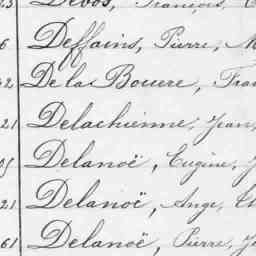 Debos, François,
6 Deffains, Pierre, M
2 De la Bouere, Fran
21 Delachienne, Jean,
05 Delanoë, Eugène, J
21 Delanoë, Ange, Ch
61 Delanoë, Pierre, Je